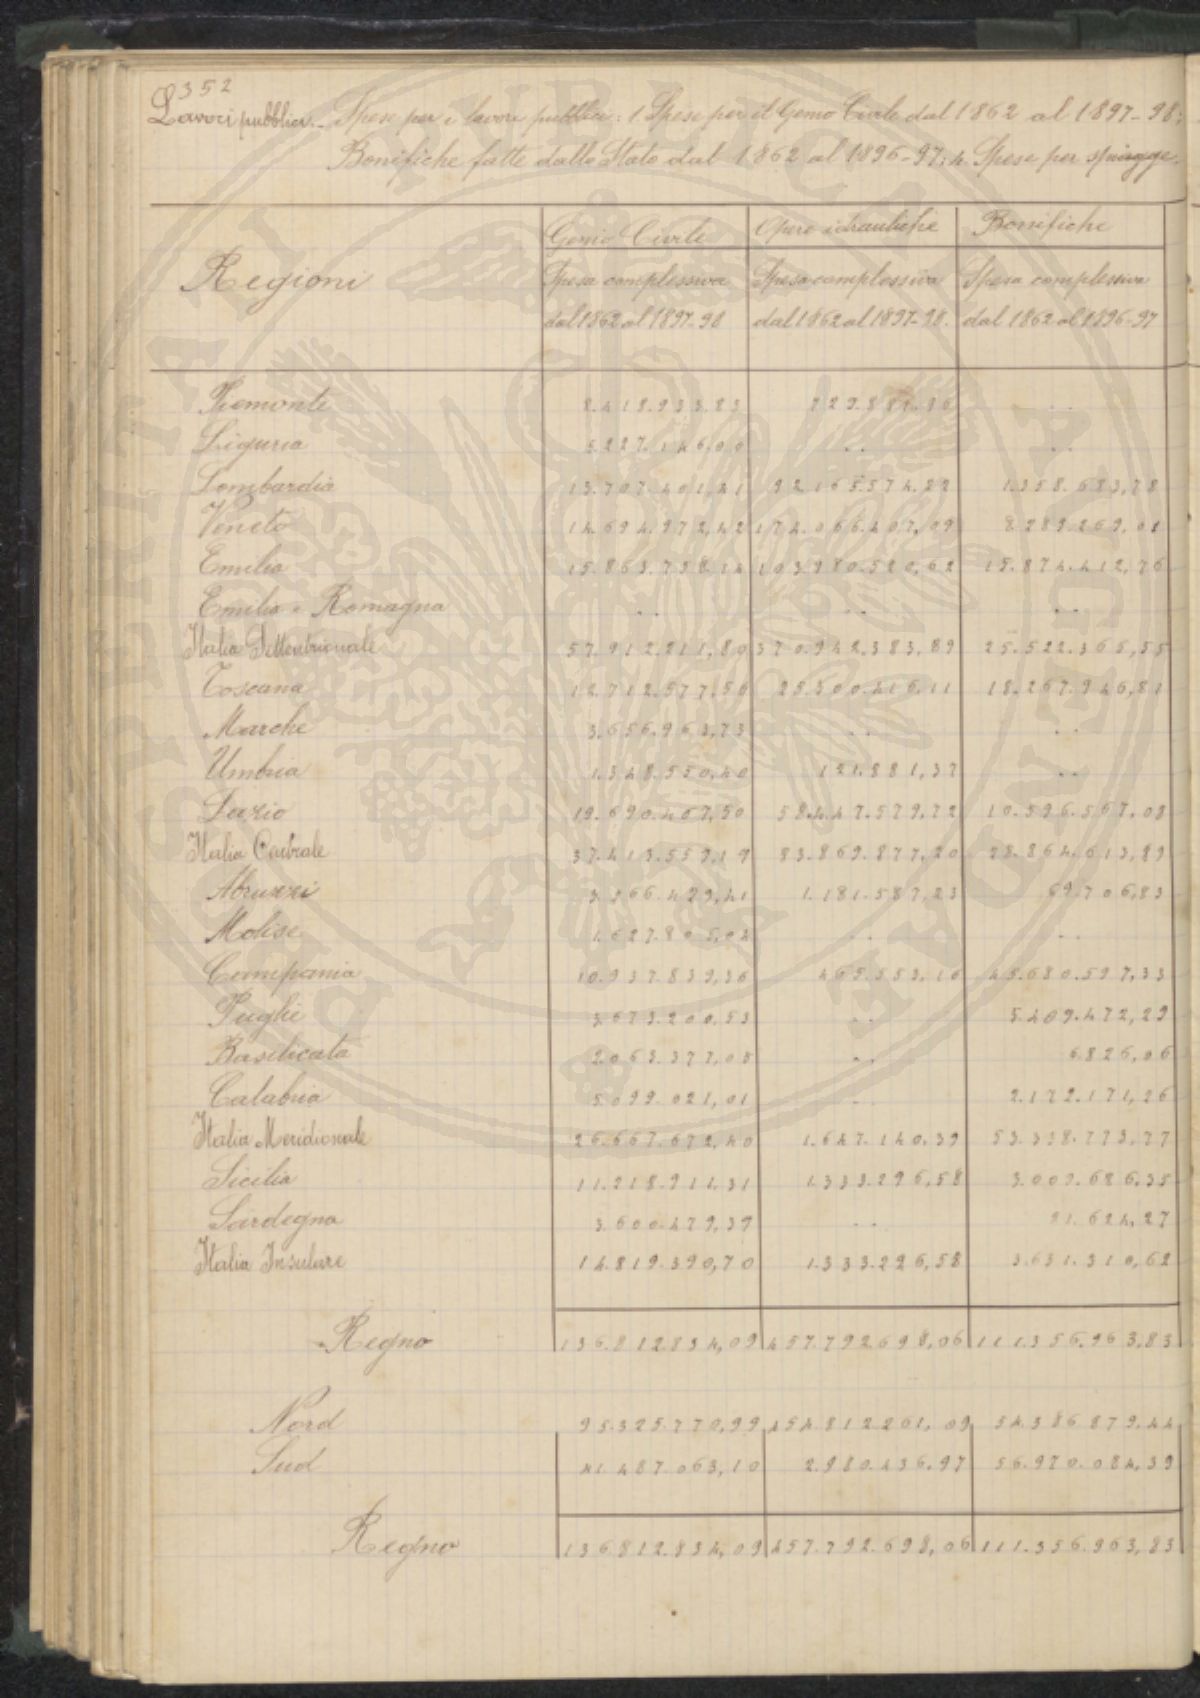 352
Lavori pubblici. - Spese per i lavori pubblici: 1. Spese per il Genio Civile dal 1862 al 1897-98;
Bonifiche fatte dallo Stato dal 1862 al 1896-97; 4. Spese per spiagge.
Regioni | Genio Civile | Opere idrauliche | Bonifiche
Spesa complessiva | Spesa complessiva | Spesa complessiva
dal 1862 al 1897-98 | dal 1862 al 1897-98. | dal 1862 al 1896-97
Piemonte 8.418.933.83 .. 
Liguria 5.227.146.00 .. ..
Lombardia 13.707.401,41 92.165.574.22 1.358.683,78
Veneto 14.694.972,42 174.066.407,09 8.289.269,01
Emilia 15.863.758.14 103.980.520,62 15.874.412,76
Emilia e Romagna .. .. ..
Italia Settentrionale 57.912.211,80 370.942.383,89 25.522.365,55
Toscana 12.712.577.56 25.300.416.11 18.267.946,81
Marche 3.656.963,73 .. ..
Umbria 1.348.550,40 121.881,37 ..
Lazio 19.690.467,50 58.447.579,72 10.596.567,08
Italia Centrale 37.413.559.19 83.869.877,20 28.864.613,89
Abruzzi 3.266.429,41 1.181.587,23 69.706,83
Molise 1.627.805,02 .. ..
Campania 10.937.839,36 465.553,16 45.680.597,33
Puglie 3.673.200.53 .. 5.409.472,29
Basilicata 2.063.377,08 .. 6.826,06
Calabria 5.099.021,01 .. 2.172.171,26
Italia Meridionale 26.667.672,40 1.647.140,39 53.338.773,77
Sicilia 11.218.911.31 1.333.296,58 3.609.686,35
Sardegna 3.600.479,39 .. 21.624,27
Italia Insulare 14.819.390,70 1.333.296,58 3.631.310,62
Regno 136.812834,09 457.792698,06 111.356.963,83
Nord 95.325.770,99 454.812261,09 54.386879.44
Sud 41.487.063,10 2.980.436.97 56.970.084,39
Regno 136.812.834,09 457.792.698,06 111.356.963,83